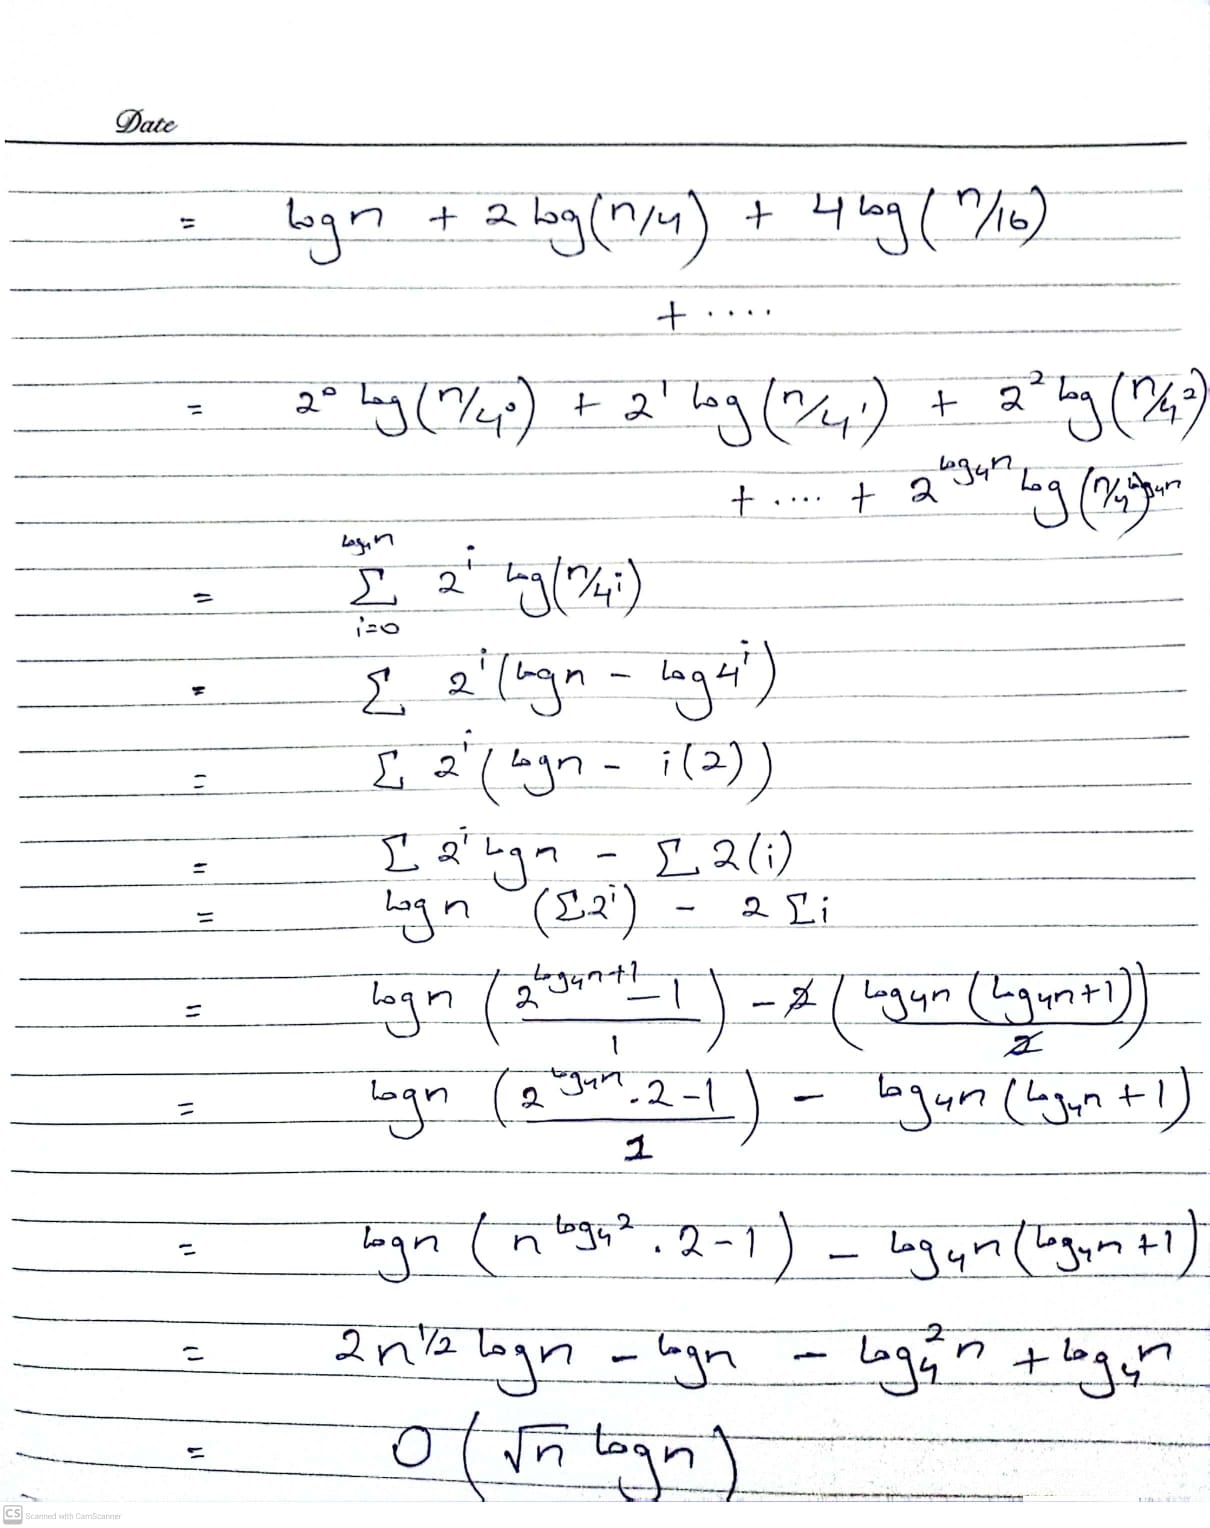 Date
= log n + 2 log(n/4) + 4 log(n/16)
+ ....
= 2⁰ log(n/4⁰) + 2¹ log(n/4¹) + 2² log(n/4²)
+ .... + 2^(log₄n) log(n/4^(log₄n)
= Σ_{i=0}^{log₄n} 2^i log(n/4^i)
= Σ 2^i (log n - log 4^i)
= Σ 2^i (log n - i(2))
= Σ 2^i log n - Σ 2(i)
= log n (Σ2^i) - 2 Σi
= log n ((2^(log₄n+1) - 1)/1) - 2 ((log₄n (log₄n+1))/2)
= log n ((2^(log₄n) . 2 - 1)/1) - log₄n (log₄n + 1)
= log n (n^(log₄2) . 2 - 1) - log₄n (log₄n + 1)
= 2n^(1/2) log n - log n - log₄²n + log₄n
= O(√n log n)
CS Scanned with CamScanner